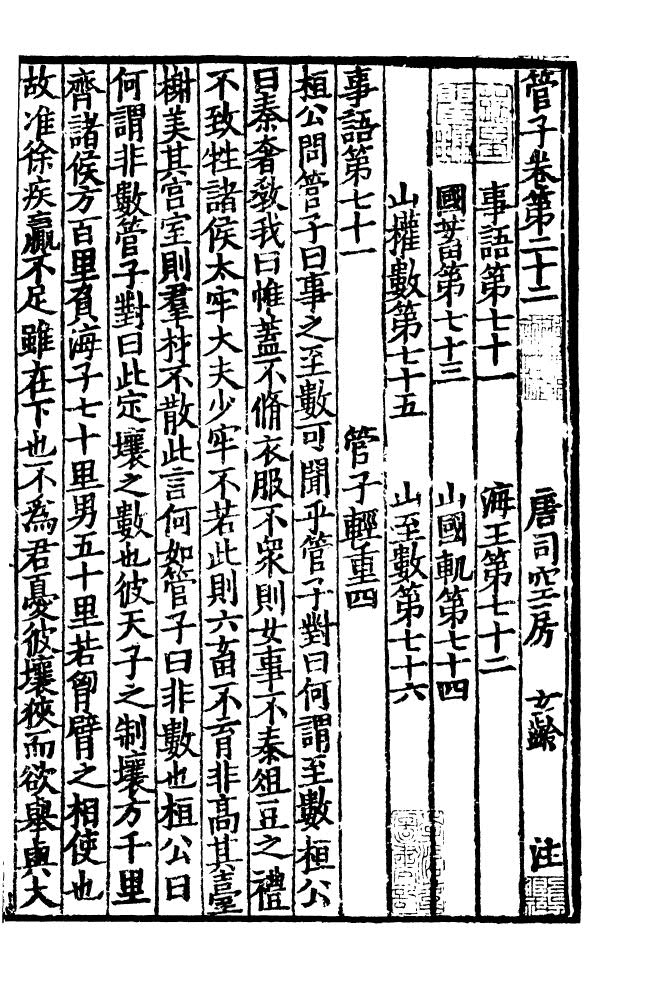 管子卷第二十二　唐司空房　玄齡　注
事語第七十一　海王第七十二
國蓄第七十三　山國軌第七十四
山權數第七十五　山至數第七十六
事語第七十一　管子輕重四
桓公問管子曰事之至數可聞乎管子對曰何謂至數桓公
曰秦奢教我曰帷蓋不脩衣服不衆則女事不泰俎豆之禮
不致牲諸侯太牢大夫少牢不若此則六畜不育非高其臺
榭美其宮室則羣材不散此言何如管子曰非數也桓公曰
何謂非數管子對曰此定壤之數也彼天子之制壤方千里
齊諸侯方百里負海子七十里男五十里若胷臂之相使也
故准徐疾羸不足雖在下也不爲君憂彼壤狹而欲舉與大